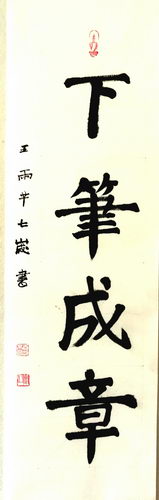 下筆成章
王雨中七歲書